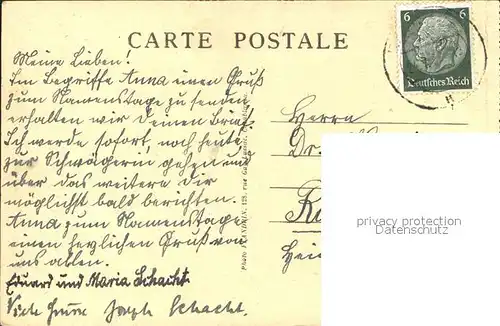 CARTE POSTALE
6
Deutsches Reich
Meine Lieben!
Im Begriffe Anna einen Gruß
zum Namenstage zu senden
erhalten wir Deinen Brief.
Ich werde sofort, noch heute
zur Schwägerin gehen und
über das weitere Dir
möglichst bald berichten.
Anna zum Namenstage
einen herzlichen Gruß von
uns allen.
Eduard und Maria Schacht.
Viele Grüsse Joseph Schacht.
Herrn
Dr.
privacy protection
Datenschutz